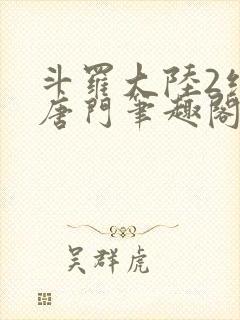 斗羅大陸2絕
唐門筆趣閣
吴群虎